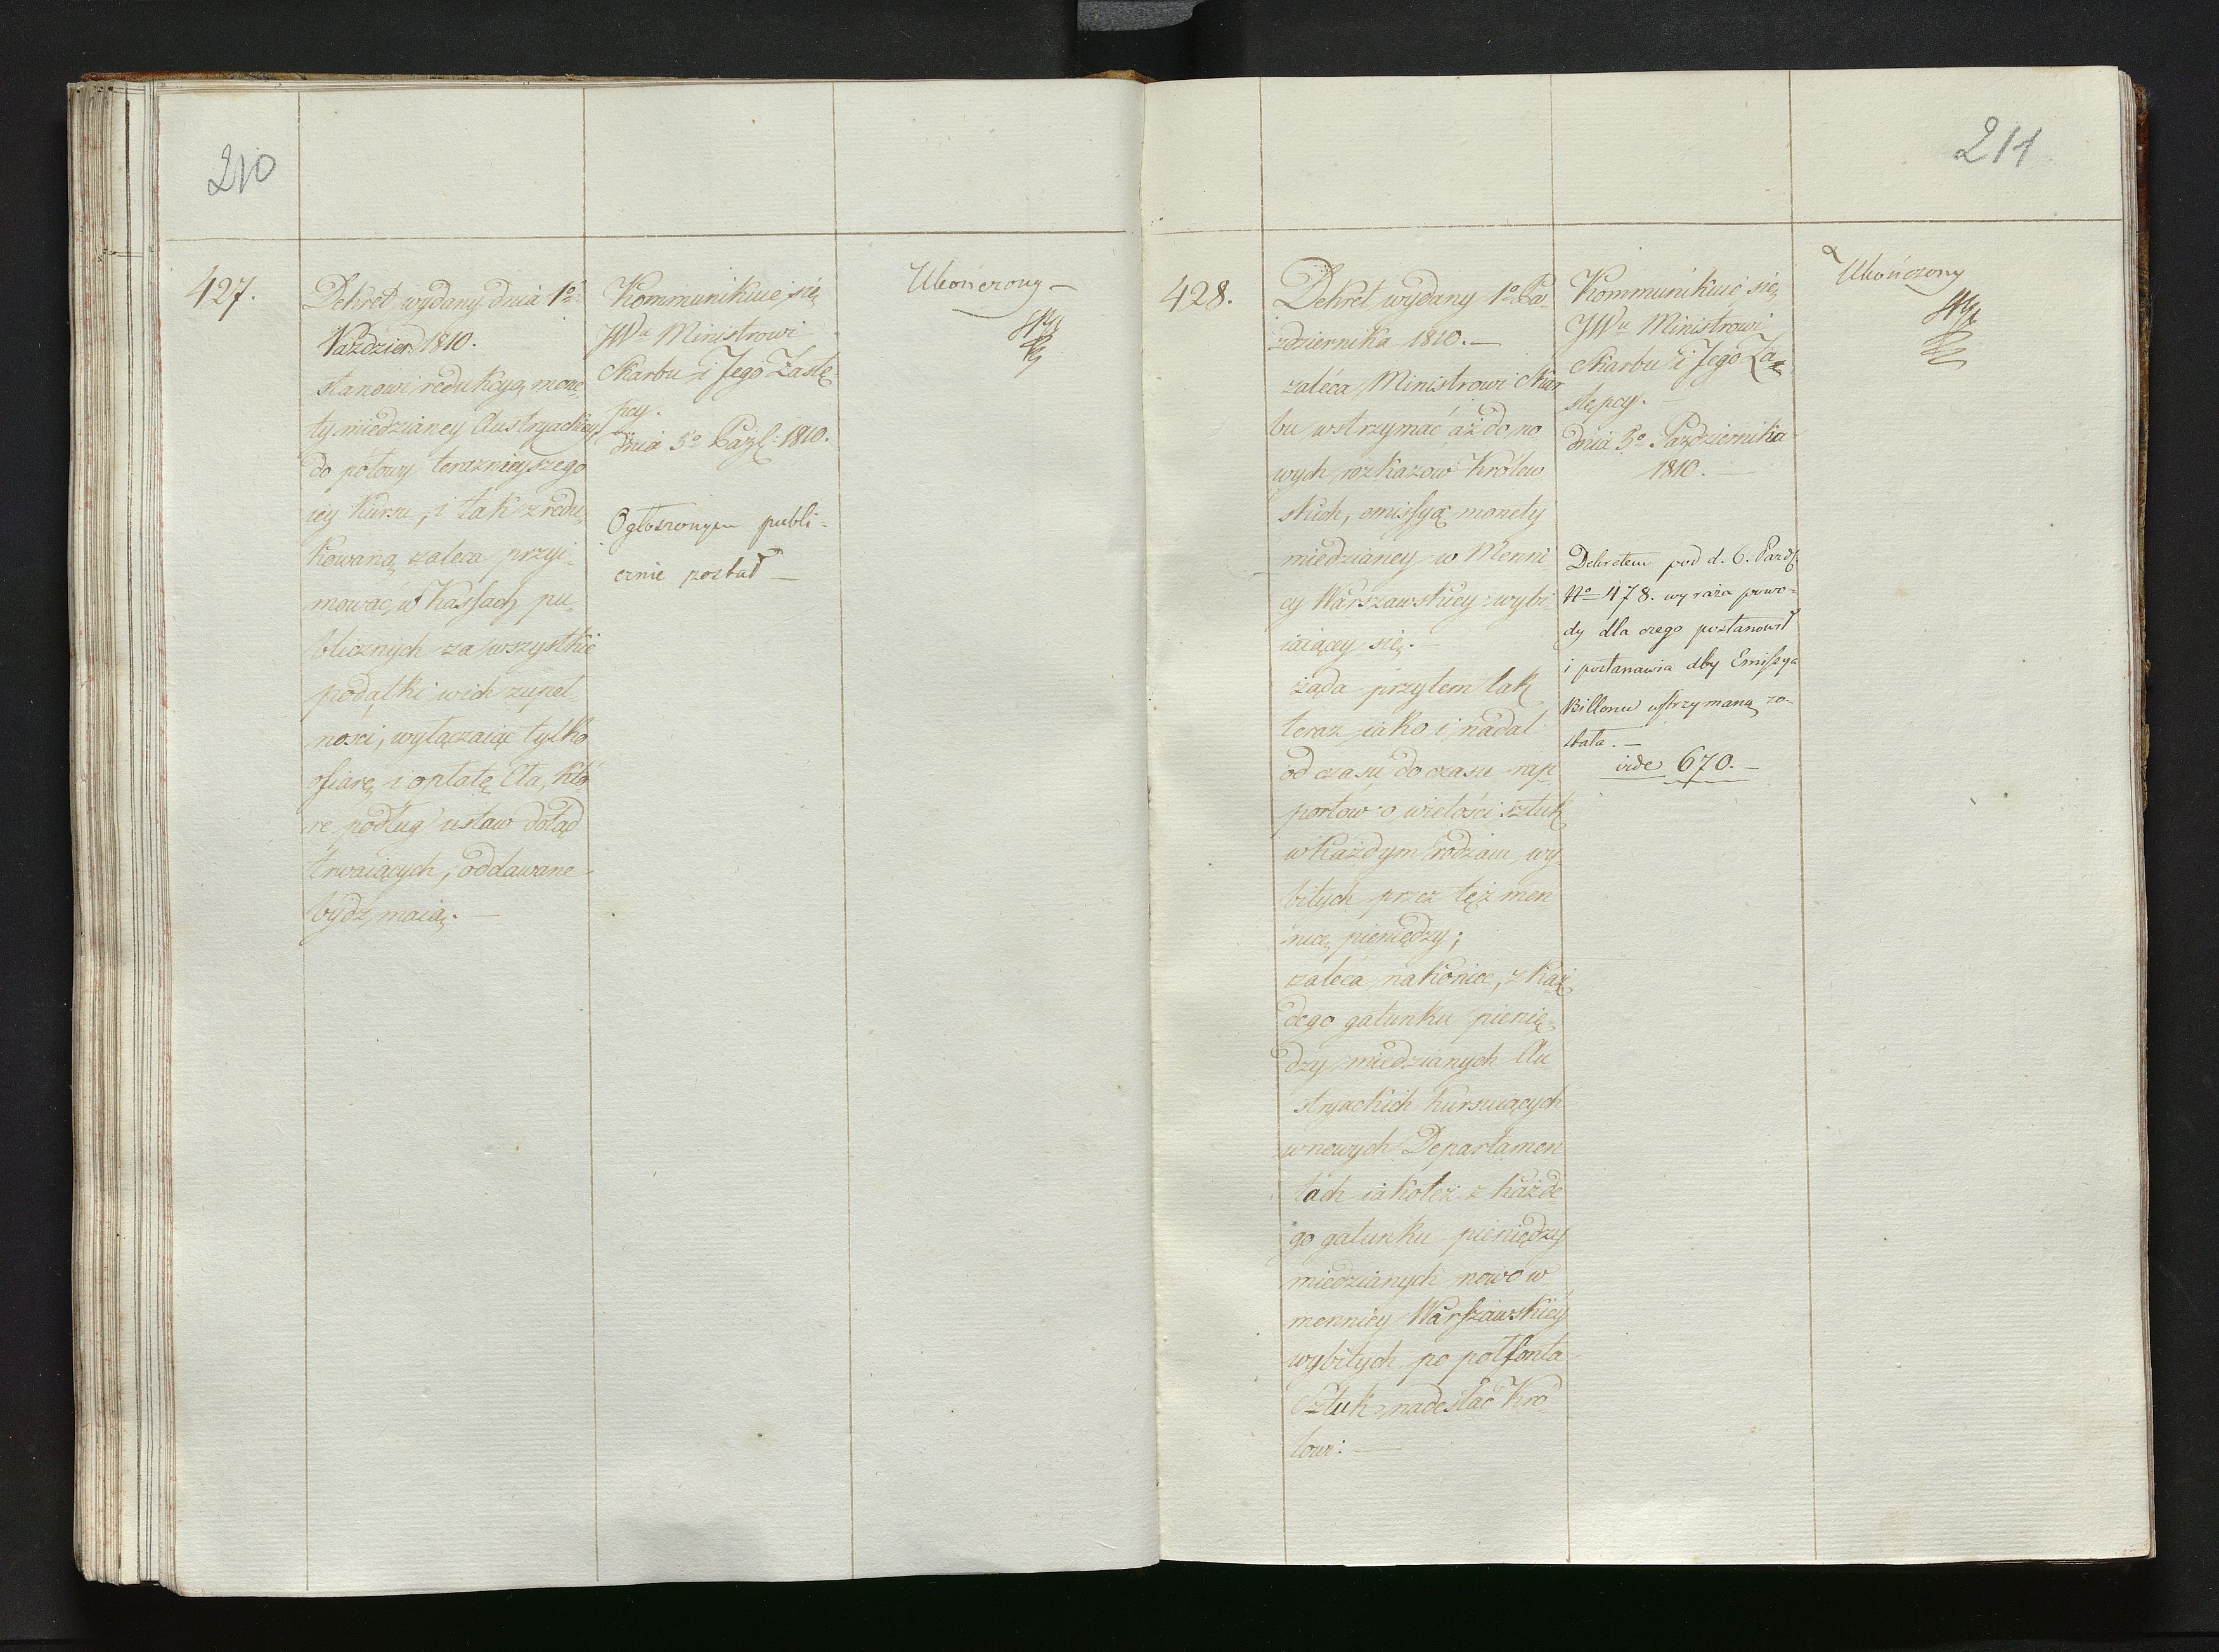 210
427.
Dekret wydany dnia 1º
Paździer: 1810.
stanowi redukcyą mone-
ty miedzianey Austryackiey
do połowy teraznieyszego
iey kursu, i tak zredu-
kowaną zaleca przyi-
mować w Kassach pu-
blicznych za wszystkie
podatki w ich zupeł-
ności, wyłączaiąc tylko
ofiarę i opłatę Cła, któ-
re podług ustaw dotąd
trwaiących, oddawane
bydź maią. —
Kommunikuie się
JWu Ministrowi
Skarbu i Jego Zastę-
pcy.
dnia 5º Paźd: 1810.
Ogłoszonym publi-
cznie został —
Ukończony —
211
428.
Dekret wydany 1º Pa-
ździernika 1810. —
zaleca Ministrowi Skar
bu wstrzymać aż do no
wych rozkazow Królew
skich, emissyą monety
miedzianey w Menni
cy Warszawskiey wybi
iaiącey się. —
żąda przytem tak
teraz iako i nadal
od czasu do czasu rap-
portów o wielości sztuk
w każdym rodzaiu wy
bitych przez tęż men
nicę pieniędzy;
zaleca nakoniec, z każ
dego gatunku pienię
dzy miedzianych Au
stryackich kursuiących
w nowych Departamen
tach iakoteż z każde
go gatunku pieniędzy
miedzianych nowo w
mennicy Warszawskiey
wybitych, po pół fonta
Sztuk, nadesłać Kró
lowi: —
Kommunikuie się
JWu Ministrowi
Skarbu i Jego Za-
stępcy. —
dnia 5º Października
1810. —
Dekretem pod d. 6. Paźdź:
Nº 478. wyraża powo-
dy dla czego postanowił
i postanawia aby Emissya
Billonu wstrzymaną zo-
stała. —
vide 670. —
Ukończony